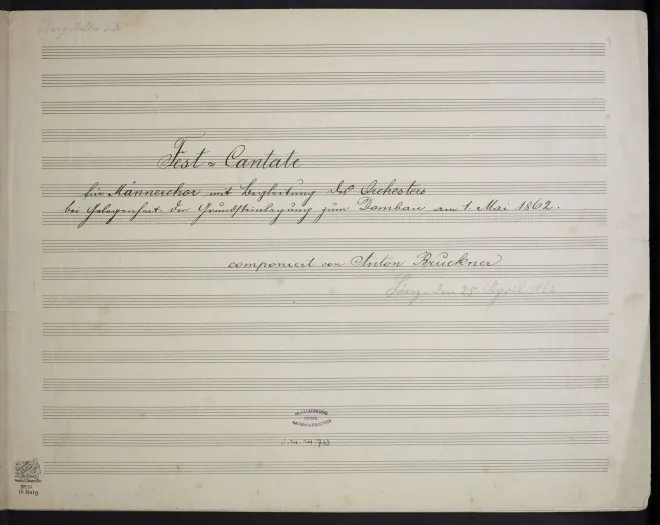 Fest-Cantate
für Männerchor mit Begleitung des Orchesters
bei Gelegenheit der Grundsteinlegung zum Dombau am 1. Mai 1862.
componiert von Anton Bruckner
Linz, den 25. April 1862